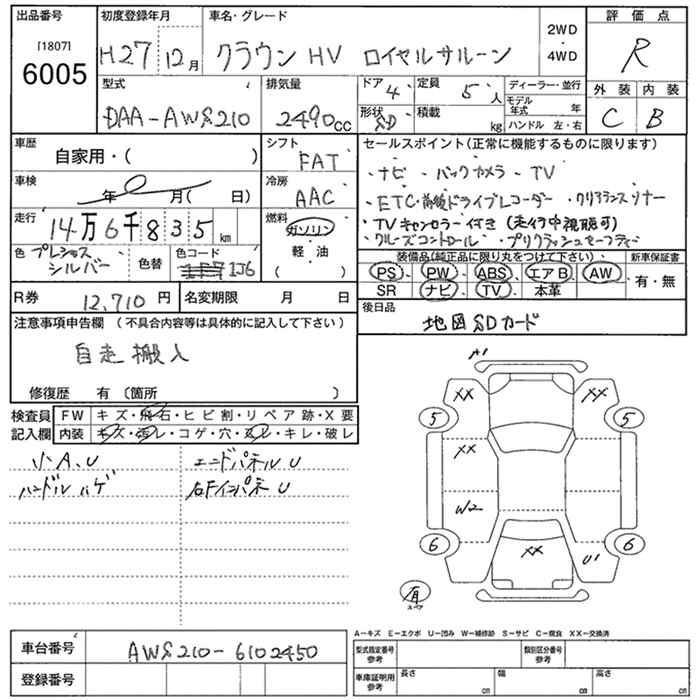 出品番号
[1807]
6005
初度登録年月
H27 12月
車名・グレード
クラウン HV ロイヤルサルーン
2WD
・
4WD
評価点
R
型式
DAA-AWS210
排気量
2490cc
ドア
4
形状
SD
定員
5人
積載
kg
ディーラー・並行
モデル年式 年
ハンドル 左・右
外装
C
内装
B
車歴
自家用・( )
シフト
FAT
車検
年 月( 日)
冷房
AAC
走行
14万6千835km
燃料
ガソリン
・
軽油
( )
色
プレシャスシルバー
色替
色コード
1J6
セールスポイント(正常に機能するものに限ります)
・ナビ ・バックカメラ ・TV
・ETC・前後ドライブレコーダー ・クリアランスソナー
・TVキャンセラー付き(走行中視聴可)
・クルーズコントロール ・プリクラッシュセーフティ
装備品(純正品に限り丸をつけて下さい)
PS PW ABS エアB AW
SR ナビ TV 本革
新車保証書
有・無
R券
12,710円
名変期限 月 日
後日品
地図SDカード
注意事項申告欄 (不具合内容等は具体的に記入して下さい)
自走搬入
修復歴 有(箇所 )
検査員
記入欄
FW キズ・飛石・ヒビ割・リペア跡・X要
内装 キズ・汚レ・コゲ・穴・スレ・キレ・破レ
小A、U
ハンドルハゲ
エンドパネルU
右FインパネU
A1
XX XX
5 5
XX
W2
6 6
XX
U1
有
スペア
A-キズ E-エクボ U-凹み W-補修跡 S-サビ C-腐食 XX-交換済
車台番号
AWS210-6102450
登録番号
型式指定番号
参考
類別区分番号
参考
車庫証明用
参考
長さ cm
幅 cm
高さ cm